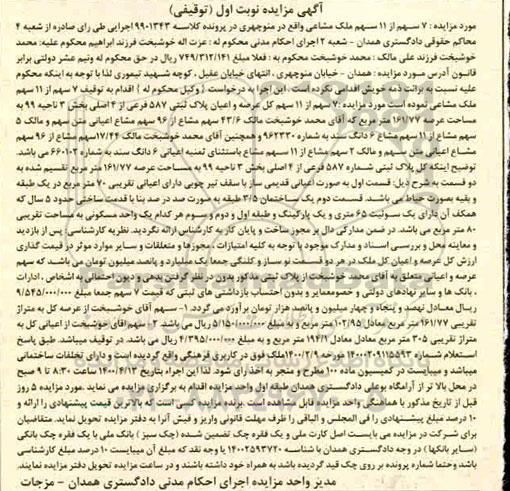 آگهی مزایده نوبت اول (توقیفی)
مورد مزایده : ۷ سهم از ۱۱ سهم ملک مشاعی واقع در منوچهری در پرونده کلاسه ۹۹۰۱۳۴۳ اجرایی طی رای صادره از شعبه ۴
محاکم حقوقی دادگستری همدان - شعبه ۲ اجرای احکام مدنی محکوم له : عزت اله خوشبخت فرزند ابراهیم محکوم علیه: محمد
خوشبخت فرزند علی مالک : محمد خوشبخت محکوم به : فعلا مبلغ ۷۴۹/۳۱۲/۱۴۱ ریال در حق محکوم له ونیم عشر دولتی برابر
قانون آدرس مورد مزایده : همدان - خیابان منوچهری ، انتهای خیابان عقیل ، کوچه شهدید تیموری لذا با توجه به اینکه محکوم
علیه نسبت به برائت ذمه خویش اقدامی نکرده است ، این اجرا به درخواست { وکیل محکوم له } اقدام به توقیف ۷ سهم از ۱۱ سهم
ملک مشاعی نموده است مورد مزایده :۷ سهم از ۱۱ سهم کل عرصه و اعیان پلاک ثبتی ۵۸۷ فرعی از ۴ اصلی بخش ۳ ناحیه ۹۹ به
مساحت عرصه ۱۶۱/۷۷ متر مربع که آقای محمد خوشبخت مالک ۴۳/۶ سهم مشاع از ۹۶ سهم مشاع اعیانی متن سهم و مالک ۵
سهم مشاع از ۱۱ سهم مشاع ۶ دانگ سند به شماره ۹۶۲۳۳۰ و همچنین آقای محمد خوشبخت مالک ۱۷/۴۴ سهم مشاع از ۹۶ سهم
مشاع اعیانی متن سهم و مالک ۲ سهم مشاع از ۱۱ سهم مشاع باستثنای ثمنیه اعیانی ۶ دانگ سند به شماره ۶۶۰۱۰۲ می باشد.
توضیح اینکه کل پلاک ثبتی شماره ۵۸۷ فرعی از ۴ اصلی بخش ۳ ناحیه ۹۹ به مساحت عرصه ۱۶۱/۷۷ متر مربع تقسیم شده به
دو قسمت به شرح ذیل: قسمت اول به صورت اعیانی قدیمی ساز با سقف تیر چوبی دارای اعیانی تقریبی ۷۰ متر مربع در یک طبقه
و بقیه بصورت حیاط می باشد. قسمت دوم یک ساختمان ۳/۵ طبقه به صورت صد در صد بنا با قدمت ساختی حدود ۵ سال که
همکف آن دارای یک سوئیت ۶۵ متری و یک پارکینگ و طبقه اول و دوم و سوم هر کدام یک واحد مسکونی به مساحت تقریبی
۸۰ متر مربع می باشد. در ضمن مدارکی دال بر مجوز ساخت و پایان کار به کارشناس ارائه نگردید. نظریه کارشناسی : پس از بازدید
و معاینه محل و بررسی اسناد و مدارک موجود با توجه به کلیه امتیازات ، مجوزها و متعلقات و سایر موارد موثر در قیمت گذاری
ارزش کل عرصه و اعیان کل ملک در هر دو قسمت نو ساز و کلنگی جمعا یک میلیارد و پانصد میلیون تومان می باشد که سهم
عرصه و اعیانی متعلق به آقای محمد خوشبخت از پلاک ثبتی مذکور بدون در نظر گرفتن بدهی و دیون احتمالی به اشخاص ، ادارات
، بانک ها و سایر نهادهای دولتی و خصومعمایر و بدون احتساب بازداشتی های ثبتی که قیمت ۷ سهم جمعا مبلغ ۹/۵۴۵/۰۰۰/۰۰۰
ریال معادل نهصد و پنجاه و چهار میلیون و پانصد هزار تومان برآورد می گردد. ۱- سهم آقای خوشبخت از عرصه کل به متراژ
تقریبی ۱۶۱/۷۷ متر مربع معادل ۱۰۲/۹۵ متر مربع و به مبلغ ۵/۱۵۰/۰۰۰/۰۰۰ ریال می باشد ۲. سهم آقای خوشبخت از اعیانی کل به
متراژ تقریبی ۳۰۵ متر مربع معادل ۱۹۴/۱ متر مربع و به مبلغ ۴/۳۹۵/۰۰۰/۰۰۰ ریال می باشد. در توقیف میباشد. طبق پاسخ
استعلام شماره ۱۴۰۰۲۰۹۱۱۵۵۹۳ مورخه ۱۴۰۰/۲/۹ ملک فوق در کاربری فرهنگی واقع گردیده است و دارای تخلفات ساختمانی
میباشد و میبایست در کمیسیون ماده ۱۰۰ مطرح و منجر به اخذ رای شود. لذا این اجراء بتاریخ ۱۴۰۰/۴/۱۳ ساعت ۸:۳۰ تا ۹ صبح
در محل بالا تر از آرامگاه بوعلی دادگستری همدان طبقه اول واحد مزایده اقدام به برگزاری مزایده می نماید .مورد مزایده ۵ روز
قبل از تاریخ مذکور با هماهنگی واحد مزایده قابل مشاهده است. برنده مزایده کسی است که بالاترین قیمت پیشنهادی را ارائه و
۱۰ درصد مبلغ پیشنهادی را فی المجلس و الباقی را ظرف مهلت قانونی واریز و فیش آنرا به دفتر مزایده تحویل نماید. متقاضیان
برای شرکت در مزایده می بایست اصل کارت ملی و یک فقره چک تضمین شده (چک سبز ) بانک ملی یا یک فقره چک بانکی
(سایر بانکها ) در وجه دادگستری همدان با شناسه ۱۴۰۰۲۵۹۳۷۲۰ یا وجه نقد که مبلغ آن میبایست ۱۰ درصد مبلغ کارشناسی
باشد وحتما شماره پرونده بر روی چک قید گردیده باشد به همراه خود داشته باشند و در ساعت مزایده تحویل دفتر مزایده نمایند.
مدیر واحد مزایده اجرای احکام مدنی دادگستری همدان - مزجات